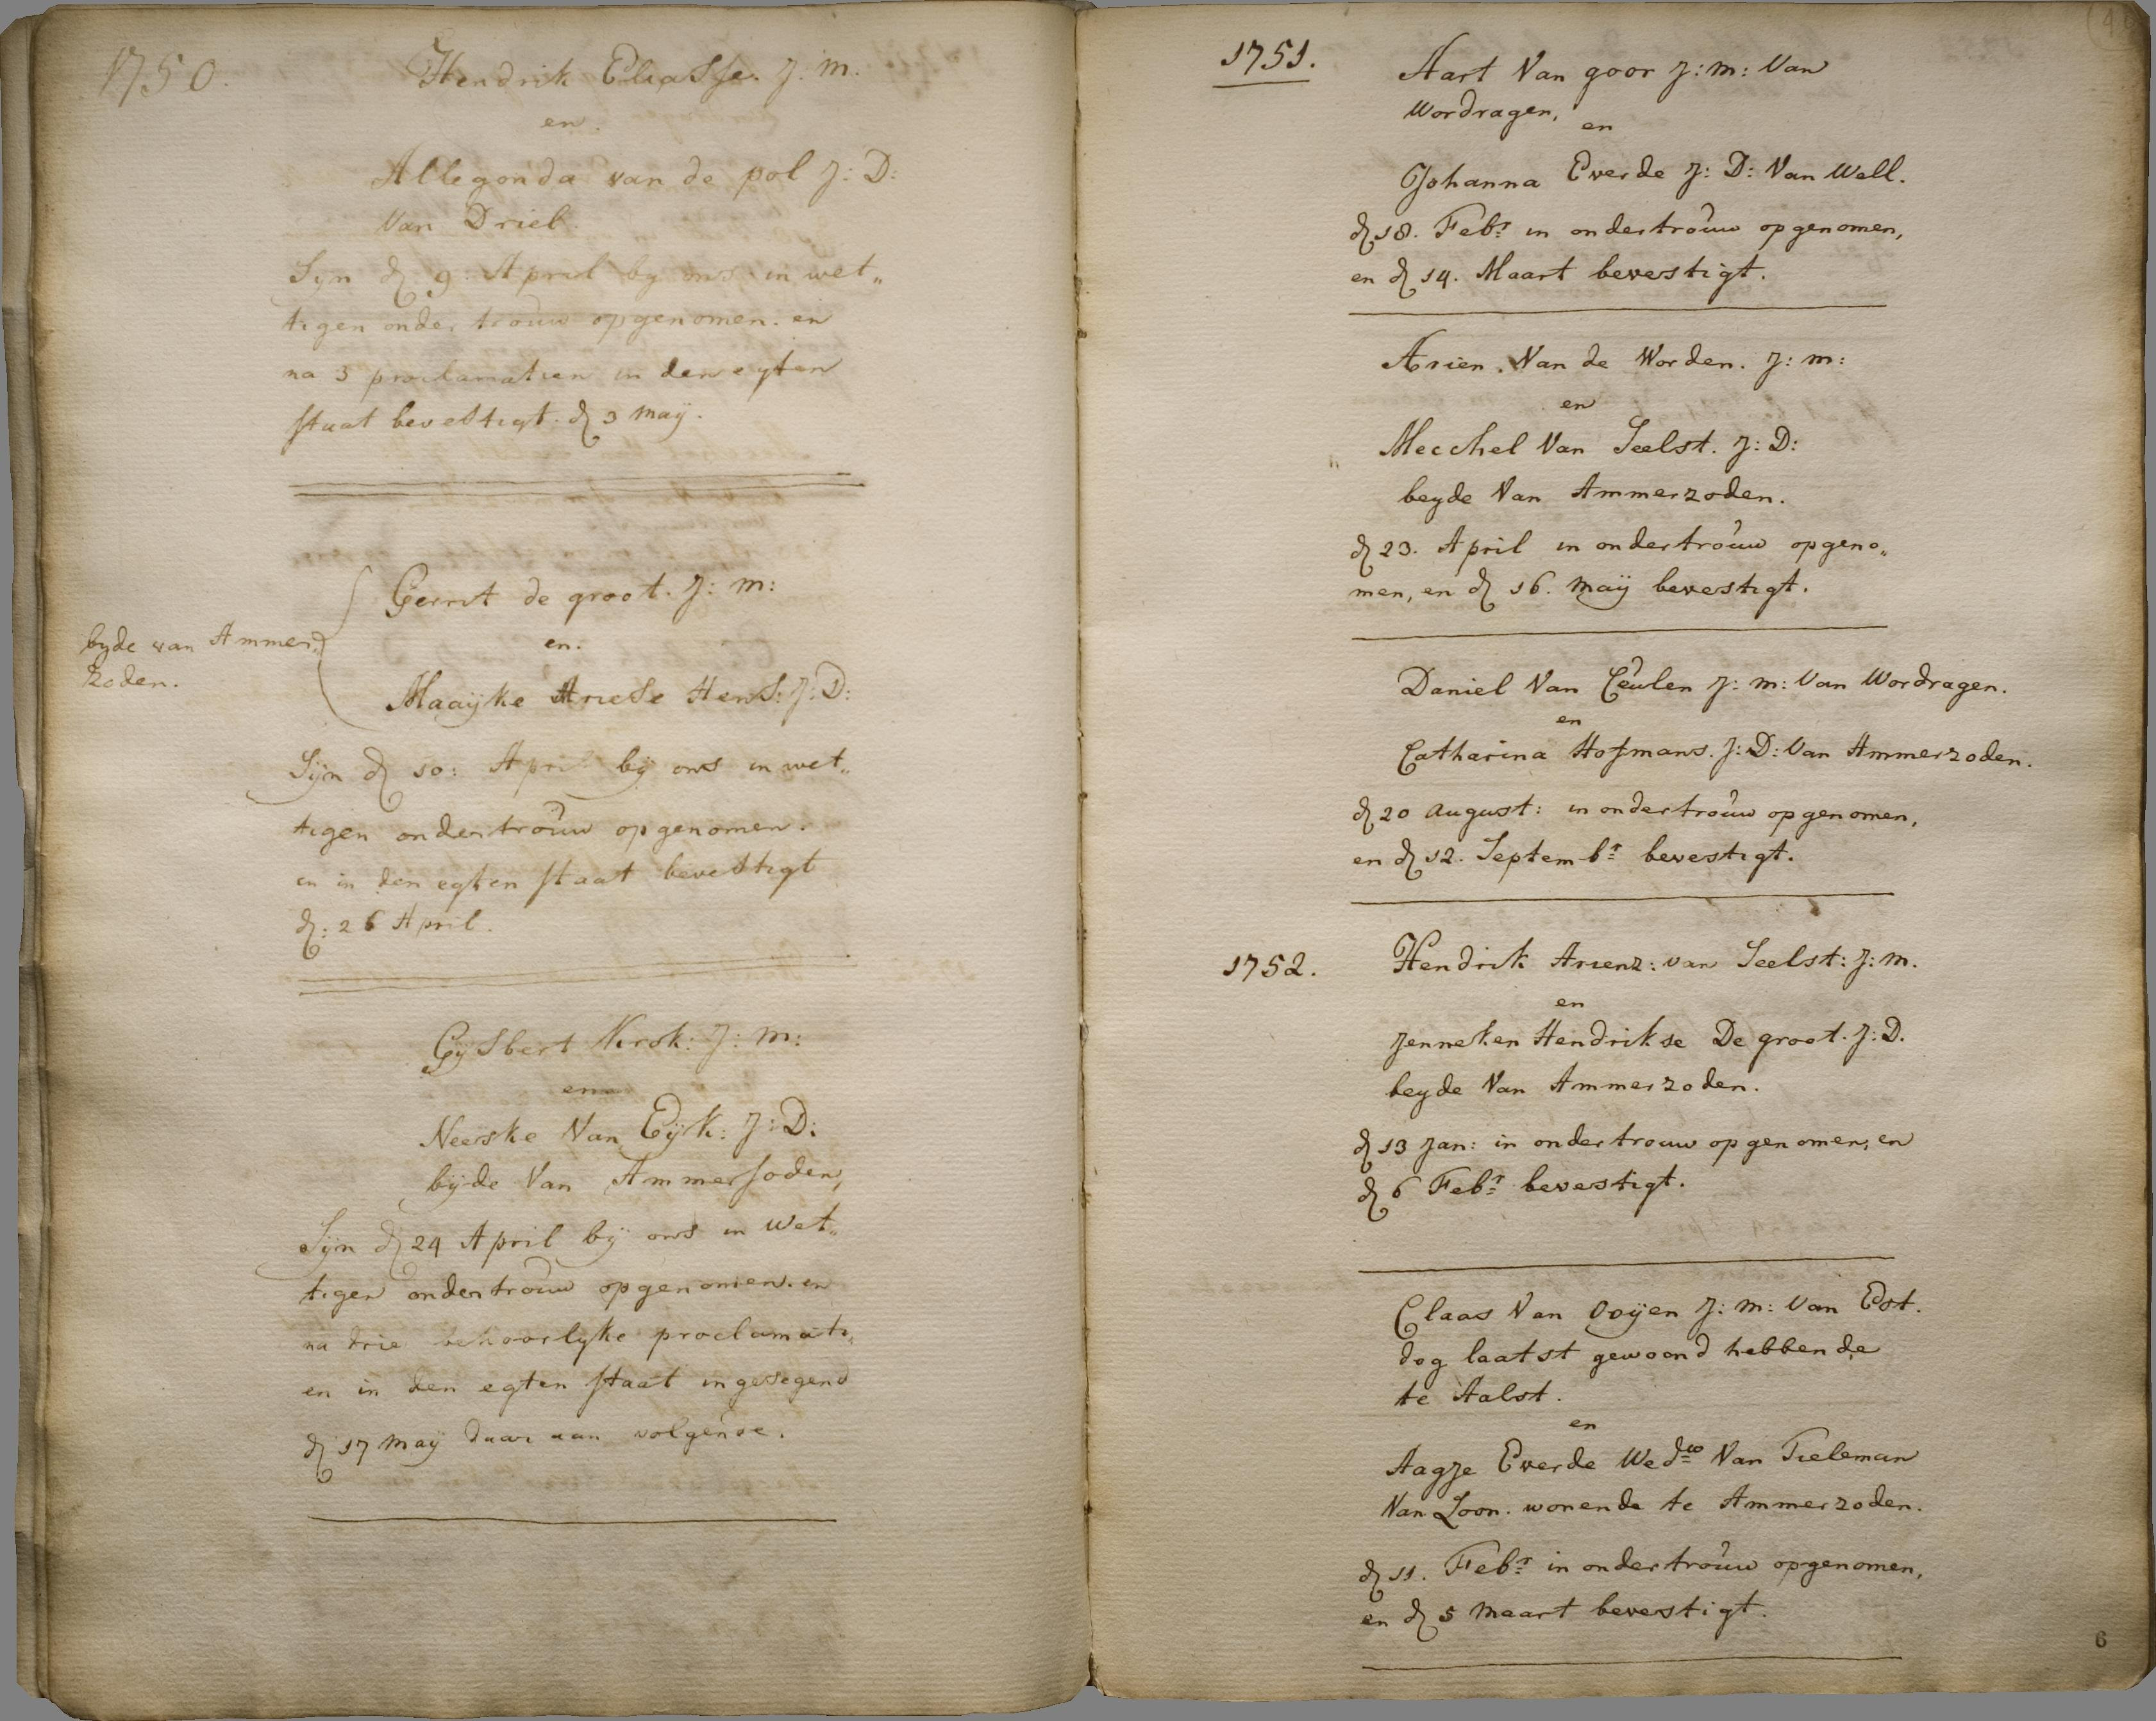 1750.
Hendrik Eliasse. J. m.
en.
Allegonda van de pol J: D:
Van Driel.
Syn d 9: April by ons in wet„
tigen onder trouw opgenomen. en
na 3 proclamatien in den egten
staat bevestigt. d 3 maÿ.
Gerrit de groot. J: m:
byde van Ammer„
zoden.
en.
Maaÿke Ariese Hens: J: D:
Sÿn d 10: April bÿ ons in wet„
tigen ondertrouw opgenomen.
en in den egten staat bevestigt
d: 26 April.
Gÿsbert Kirsk: J: m:
en
Neeske Van Eÿk: J: D:
bÿde Van Ammersoden,
Sÿn d 24 April bÿ ons in wet„
tigen ondertrouw opgenomen. en
na drie behoorlyke proclamati„
en in den egten staat ingesegend
d 17 maÿ daar aan volgende.
1751.
Aart Van goor J: m: Van
Wordragen,
en
Johanna Everde J: D: Van Well.
d 18. Febr in ondertrouw opgenomen,
en d 14. Maart bevestigt.
Arien. Van de Worden. J: m:
en
Mecchel Van Seelst. J: D:
beyde Van Ammerzoden.
d 23. April in ondertrouw opgeno„
men, en d 16. maÿ bevestigt.
Daniel Van Ceulen J: m: Van Wordragen.
en
Catharina Hofmans. J: D: Van Ammerzoden.
d 20 august: in ondertrouw opgenomen,
en d 12. Septembr bevestigt.
1752.
Hendrik Arienz: van Seelst: J: m.
en
Jenneken Hendrikse De groot. J: D.
beyde Van Ammerzoden.
d 13 Jan: in ondertrouw opgenomen, en
d 6 Febr bevestigt.
Claas Van Ooÿen J: m: Van Est.
dog laatst gewoond hebbende
te Aalst.
en
Aagje Everde Wedw Van Tieleman
Van Loon. wonende te Ammerzoden.
d 11. Febr in ondertrouw opgenomen,
en d 5 maart bevestigt.
6